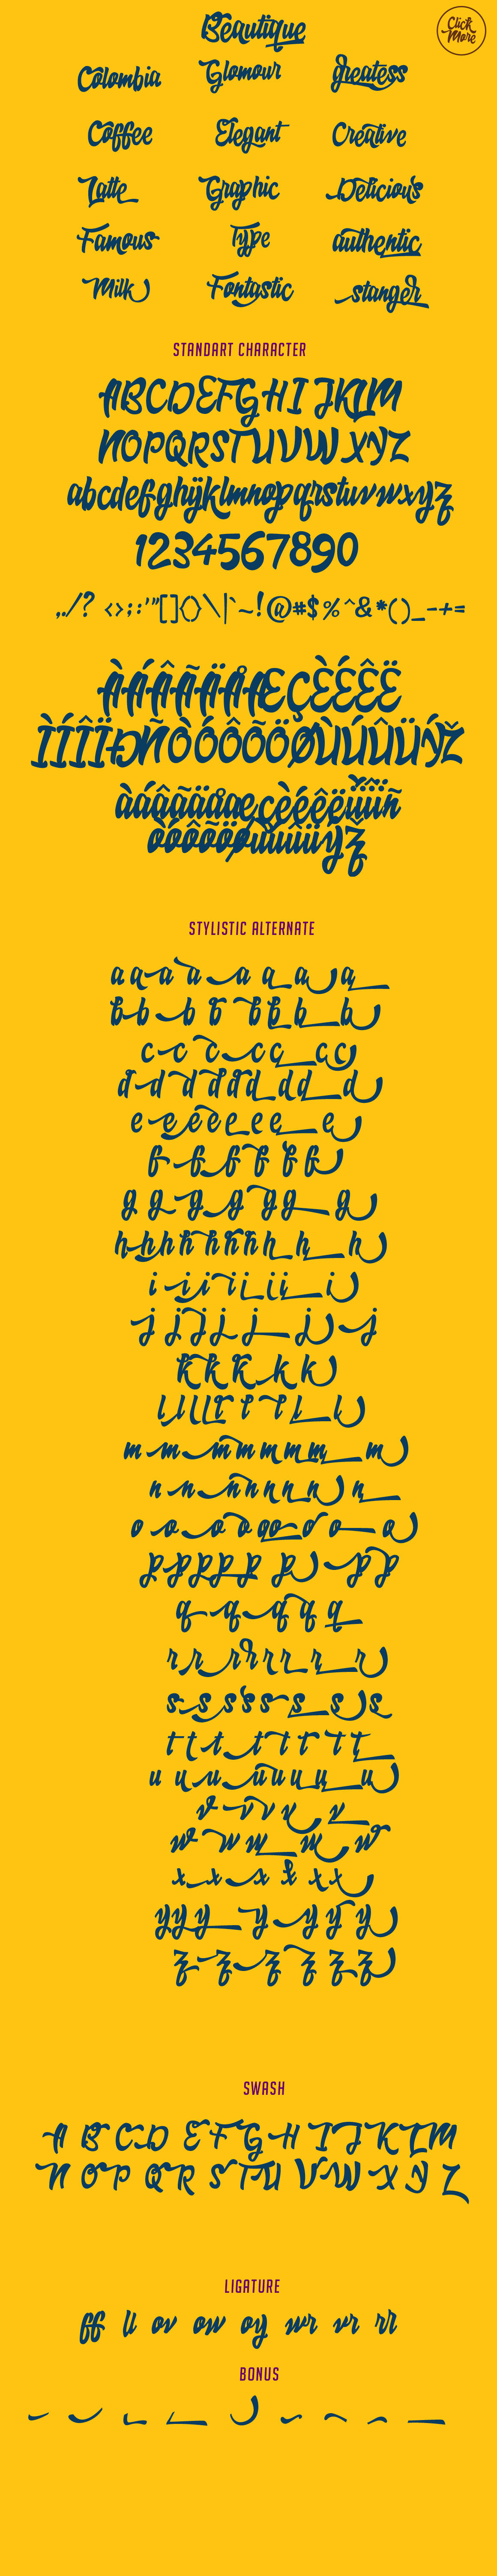 Beautique
Click
More
Colombia Glomour greatess
Coffee Elegant Creative
Latte Graphic Delicious
Famous Type authentic
Milk Fontastic stanger
STANDART CHARACTER
ABCDEFGHIJKLM
NOPQRSTUVWXYZ
abcdefghijklmnopqrstuvwxyz
1234567890
,./? <>;:'"[]{}\|`~!@#$%^&*()_-+=
ÀÁÂÃÄÅÆÇÈÉÊË
ÌÍÎÏÐÑÒÓÔÕÖØÙÚÛÜÝŽ
àáâãäåæçèéêëìíîïñ
òóôõöøùúûüýž
STYLISTIC ALTERNATE
a a a a a a a a
b b b b b b b b
c c c c c c c
d d d d d d d d d
e e e e e e e
f f f f f f
g g g g g g g
h h h h h h h h h
i i i i i i i i
j j j j j j j
k k k k k
l l l l l l l l l
m m m m m m m m
n n n n n n n n
o o o o o o o o o
p p p p p p p p
q q q q q
r r r r r r r r
s s s s s s s s
t t t t t t t t
u u u u u u u u
v v v v v
w w w w w
x x x x x x
y y y y y y y
z z z z z z
SWASH
A B C D E F G H I J K L M
N O P Q R S T U V W X Y Z
LIGATURE
ff ll ov ow oy wr vr rr
BONUS